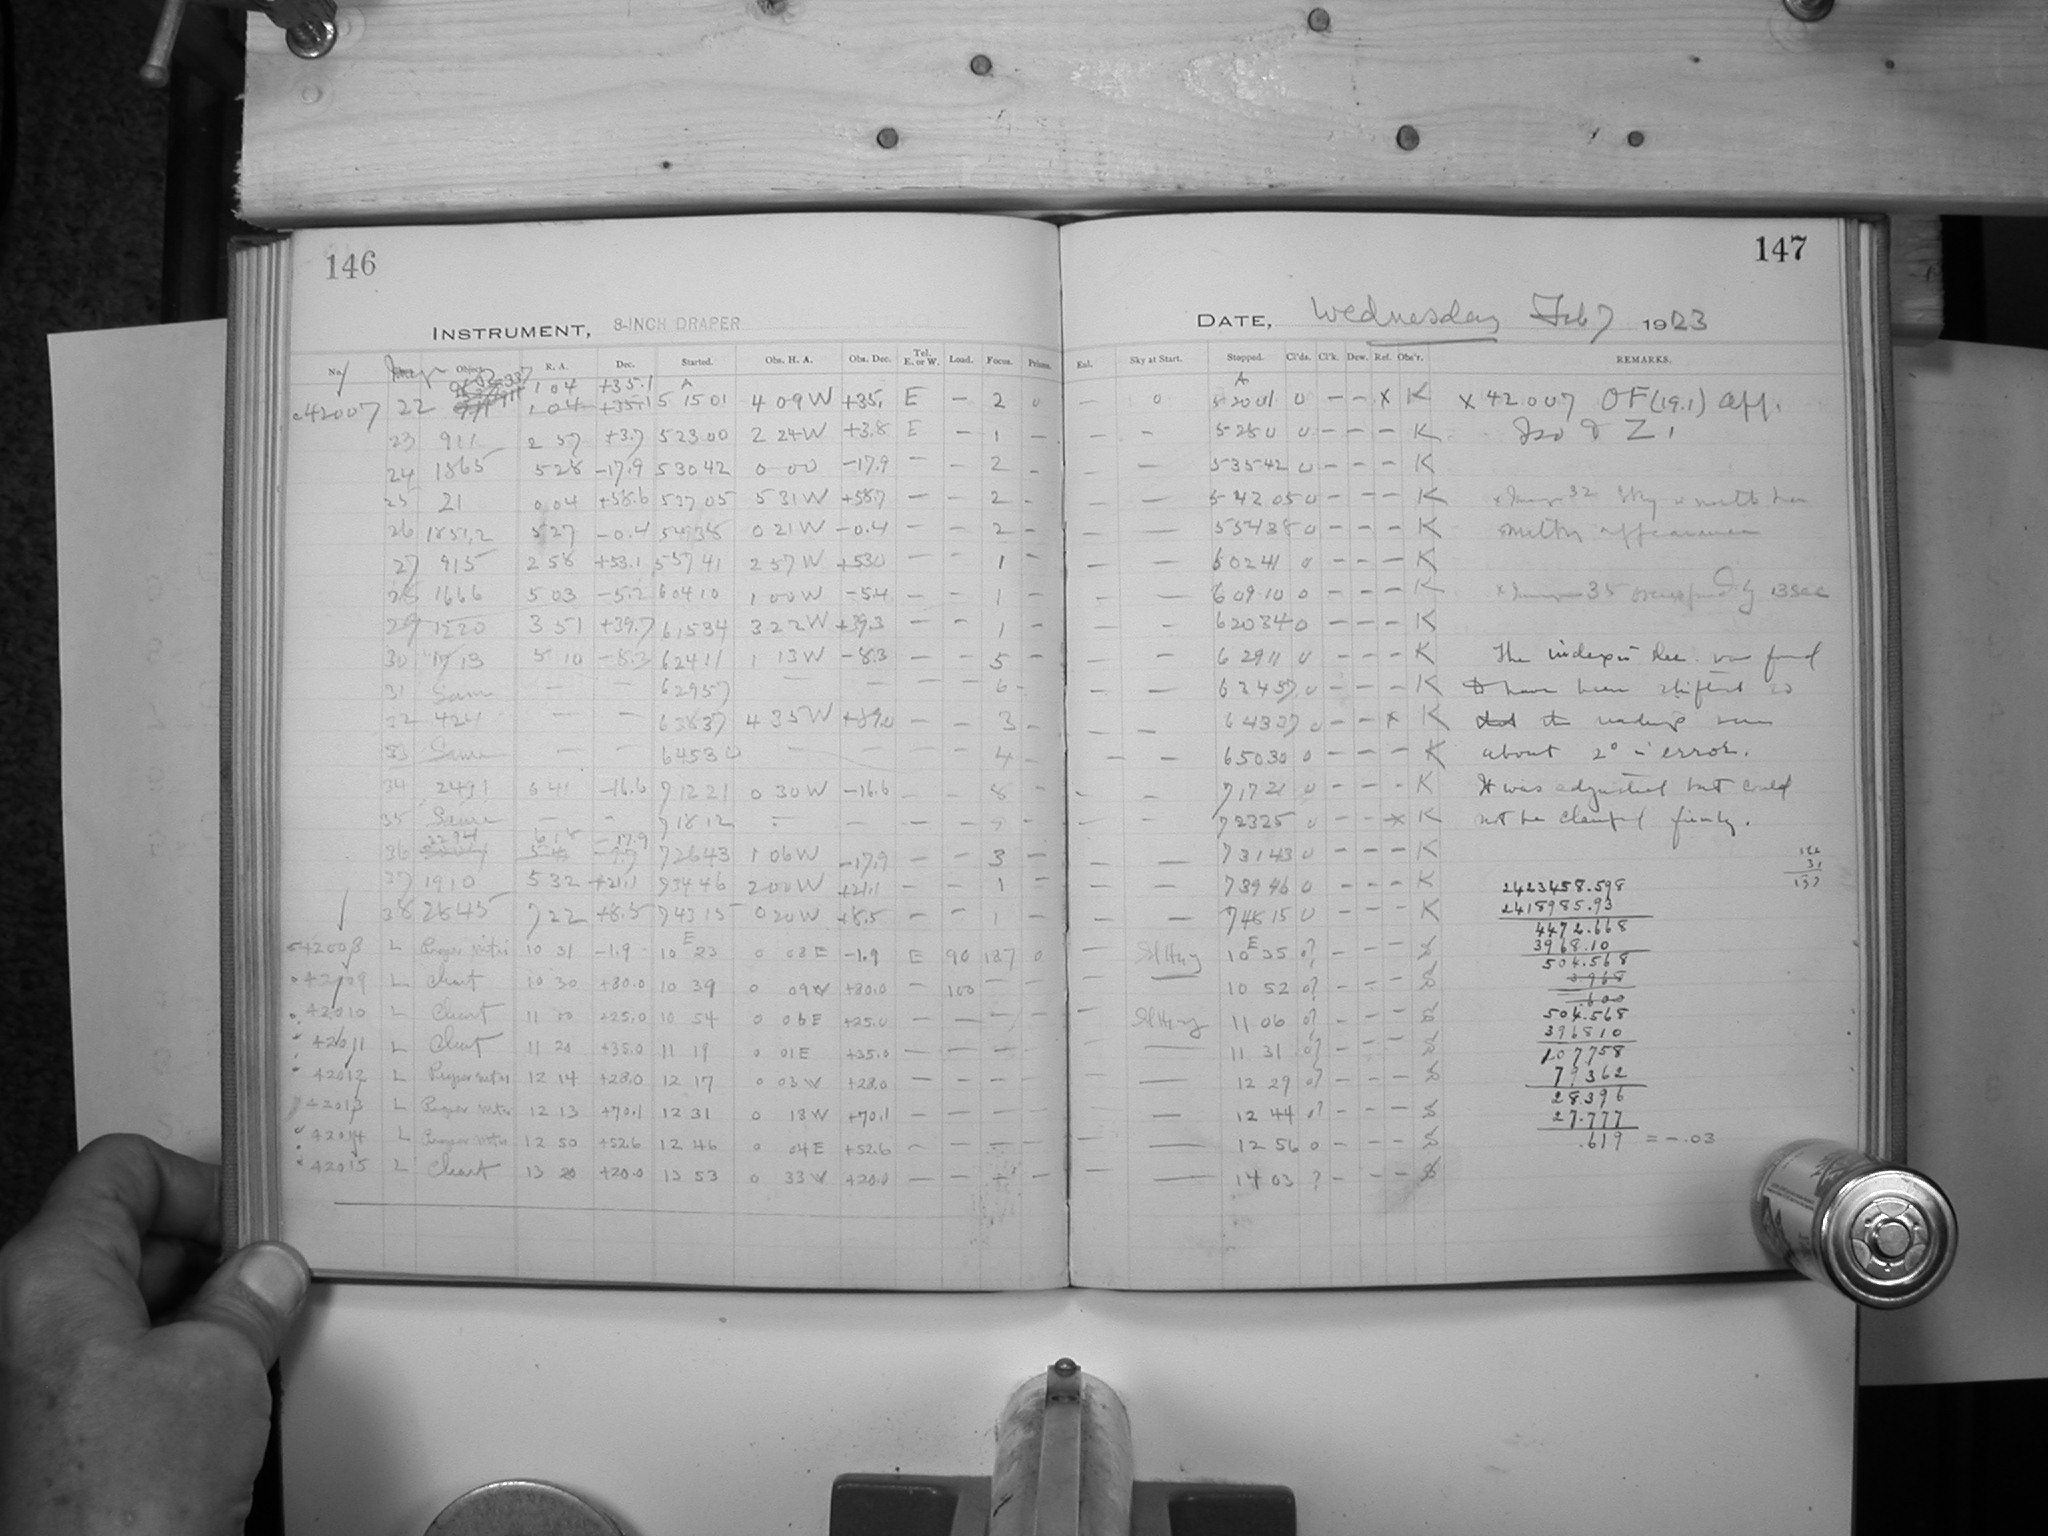 146
147
INSTRUMENT, 8-INCH DRAPER
DATE, Wednesday Feb 7 1923
No. Object. R. A. Dec. Started. Obs. H. A. Obs. Dec. Tel. E. or W. Load. Focus. Prisms. Eml. Sky at Start. Stopped. Cl'ds. Cl'k. Dew. Ref. Obs'r. REMARKS.
1 04 +35.1 A
c42007 22 1 04 +35.1 5 15 01 4 09 W +35. E – 2 0 – 0 5 20 01 0 – – x K x 42007 OF (19.1) app.
23 911 2 57 +3.7 5 23 00 2 24 W +3.8 E – 1 – – – 5 28 0 0 – – – K Z 1
24 1865 5 28 -17.9 5 30 42 0 00 -17.9 – – 2 – – – 5 35 42 0 – – – K
25 21 0 04 +58.6 5 37 05 5 31 W +58.7 – – 2 – – – 5 42 05 0 – – – K
26 1851,2 5 27 -0.4 5 49 38 0 21 W -0.4 – – 2 – – – 5 54 38 0 – – – K appearance
27 915 2 58 +53.1 5 57 41 2 57 W +53.0 – – 1 – – – 6 02 41 0 – – – K
28 1666 5 03 -5.2 6 04 10 1 00 W -5.4 – – 1 – – – 6 09 10 0 – – – K 35 13 sec
29 1220 3 51 +39.7 6 15 34 3 22 W +39.3 – – 1 – – – 6 20 34 0 – – – K
30 1713 5 10 -8.3 6 24 11 1 13 W -8.3 – – 5 – – – 6 29 11 0 – – – K The index in Dec. was found
31 Same – – 6 29 57 – – – – 6 – – – 6 34 57 0 – – – K to have been shifted so
32 424 – – 6 38 37 4 35 W +89.0 – – 3 – – – 6 43 37 0 – – x K that the readings were
33 Same – – 6 45 30 – – – – 4 – – – 6 50 30 0 – – – K about 2° in error.
34 2491 6 41 -16.6 7 12 21 0 30 W -16.6 – – 8 – – – 7 17 21 0 – – – K It was adjusted but could
35 Same – – 7 18 12 – – – – – – – 7 23 25 0 – – x K not be clamped firmly.
2294 6 18 -17.9
36 7 26 43 1 06 W -17.9 – – 3 – – – 7 31 43 0 – – – K
37 1910 5 32 +21.1 7 34 46 2 00 W +21.1 – – 1 – – – 7 39 46 0 – – – K 2423458.598
38 2645 7 22 +8.5 7 43 15 0 20 W +8.5 – – 1 – – – 7 48 15 0 – – – K 2418985.93
4472.668
c42008 L Proper motion 10 31 -1.9 10 E 23 0 03 E -1.9 E 90 187 0 – Sl Hazy 10 E 35 0? – – – S 3968.10
504.568
42009 L Chart 10 30 +30.0 10 39 0 09 W +30.0 – 100 – – – – 10 52 0? – – – S 3968
.600
42010 L Chart 11 00 +25.0 10 54 0 06 E +25.0 – – – – – Sl Hazy 11 06 0? – – – S 504.568
396810
42011 L Chart 11 20 +35.0 11 19 0 01 E +35.0 – – – – – – 11 31 0? – – – S 107758
42012 L Proper motion 12 14 +28.0 12 17 0 03 W +28.0 – – – – – – 12 29 0? – – – S 79362
28396
42013 L Proper motion 12 13 +70.1 12 31 0 18 W +70.1 – – – – – – 12 44 0? – – – S 27.777
42014 L Proper motion 12 50 +52.6 12 46 0 04 E +52.6 – – – – – – 12 56 0 – – – S .619 = -.03
42015 L Chart 13 20 +20.0 13 53 0 33 W +20.0 – – – – – – 14 03 ? – – – S